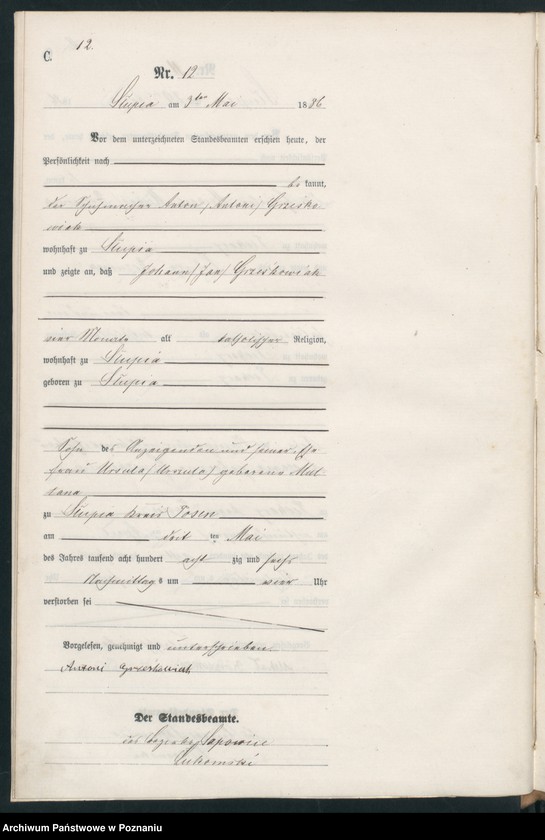 12.
C.
Nr. 12
Słupia am 3ten Mai 1886
Vor dem unterzeichneten Standesbeamten erschien heute, der
Persönlichkeit nach
be kannt,
der Anton (Antoni) Grześko-
wiak
wohnhaft zu Słupia
und zeigte an, daß Johann (Jan) Grześkowiak
vier Monate alt katholischer Religion,
wohnhaft zu Słupia
geboren zu Słupia
Sohn des Anzeigenden und seiner Ehe-
frau Ursula (Urszula) geborene
zu Słupia Kreis Posen
am ten Mai
des Jahres tausend acht hundert acht zig und sechs
Nachmittags um vier Uhr
verstorben sei
Vorgelesen, genehmigt und unterschrieben
Antoni Grześkowiak
Der Standesbeamte.
Sapowice
Łukomski
Archiwum Państwowe w Poznaniu